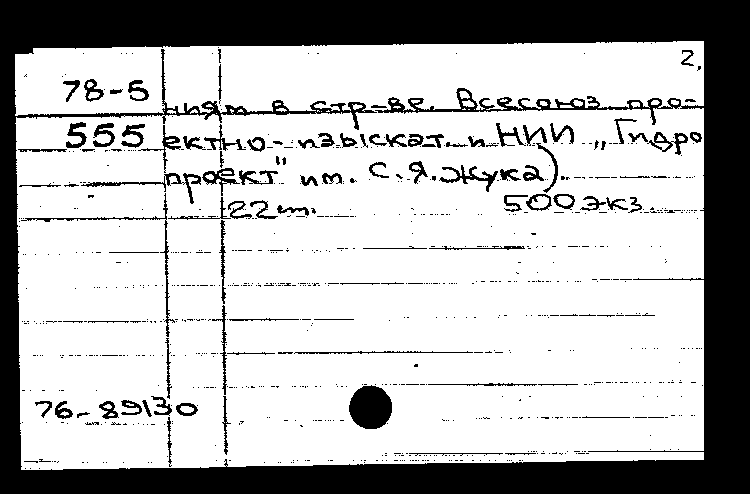 2,
78-5 ниям в стр-ве. Всесоюз. про-
555 ектно-изыскат. и НИИ „Гидро
проект" им. С.Я.Жука).
22 см. 500 экз.
76-89130